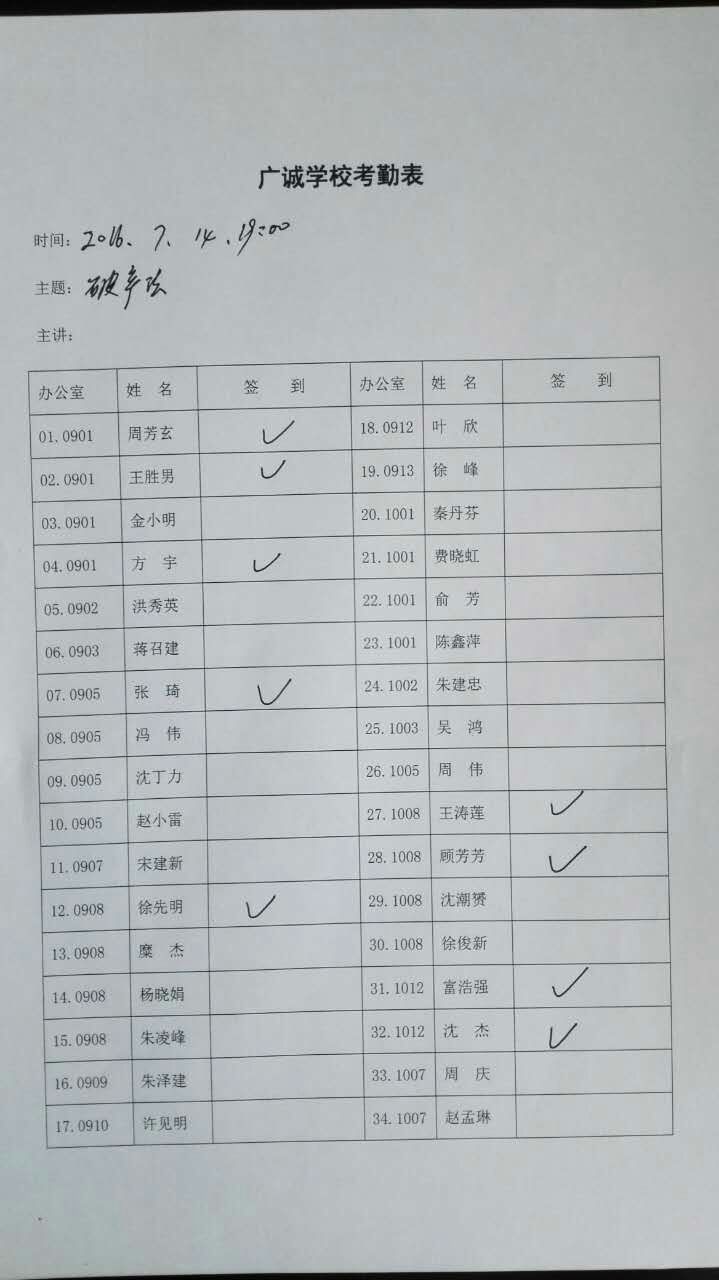 广诚学校考勤表
时间：2016、7、14、19:00
主题：破产法
主讲：
办公室 姓 名 签 到 办公室 姓 名 签 到
01.0901 周芳玄 ✓ 18.0912 叶 欣
02.0901 王胜男 ✓ 19.0913 徐 峰
03.0901 金小明 20.1001 秦丹芬
04.0901 方 宇 ✓ 21.1001 费晓虹
05.0902 洪秀英 22.1001 俞 芳
06.0903 蒋召建 23.1001 陈鑫萍
07.0905 张 琦 ✓ 24.1002 朱建忠
08.0905 冯 伟 25.1003 吴 鸿
09.0905 沈丁力 26.1005 周 伟
10.0905 赵小雷 27.1008 王涛莲 ✓
11.0907 宋建新 28.1008 顾芳芳 ✓
12.0908 徐先明 ✓ 29.1008 沈潮赟
13.0908 糜 杰 30.1008 徐俊新
14.0908 杨晓娟 31.1012 富浩强 ✓
15.0908 朱凌峰 32.1012 沈 杰 ✓
16.0909 朱泽建 33.1007 周 庆
17.0910 许见明 34.1007 赵孟琳